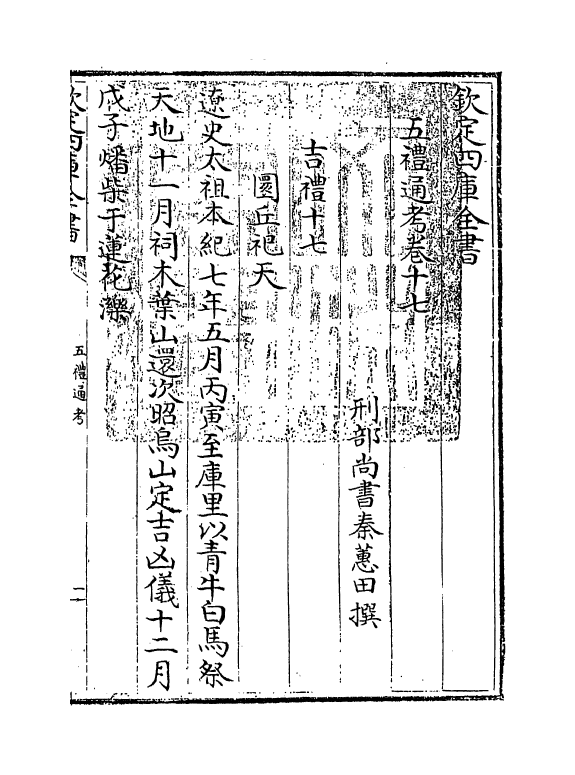 欽定四庫全書
五禮通考卷十七
刑部尚書秦蕙田撰
吉禮十七
圜丘祀天
遼史太祖本紀七年五月丙寅至庫里以青牛白馬祭
天地十一月祠木葉山還次昭烏山定吉凶儀十二月
戊子燔柴于蓮花濼
欽定四庫全書
五禮通考